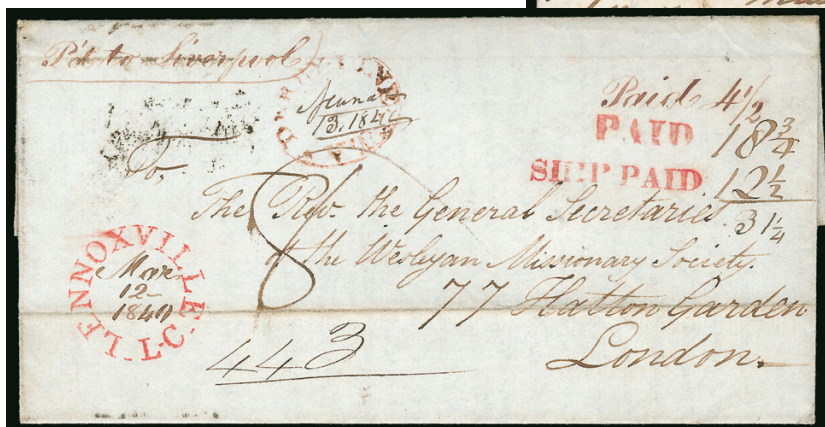 Pd to Liverpool
DERBY LINE
13. 1840
Paid 4½
PAID 18¾
SHIP PAID 12½
31¼
To,
The Rev. the General Secretaries
of the Wesleyan Missionary Society.
77 Hatton Garden
London.
8
LENNOXVILLE L.C.
Mar
12
1840
443